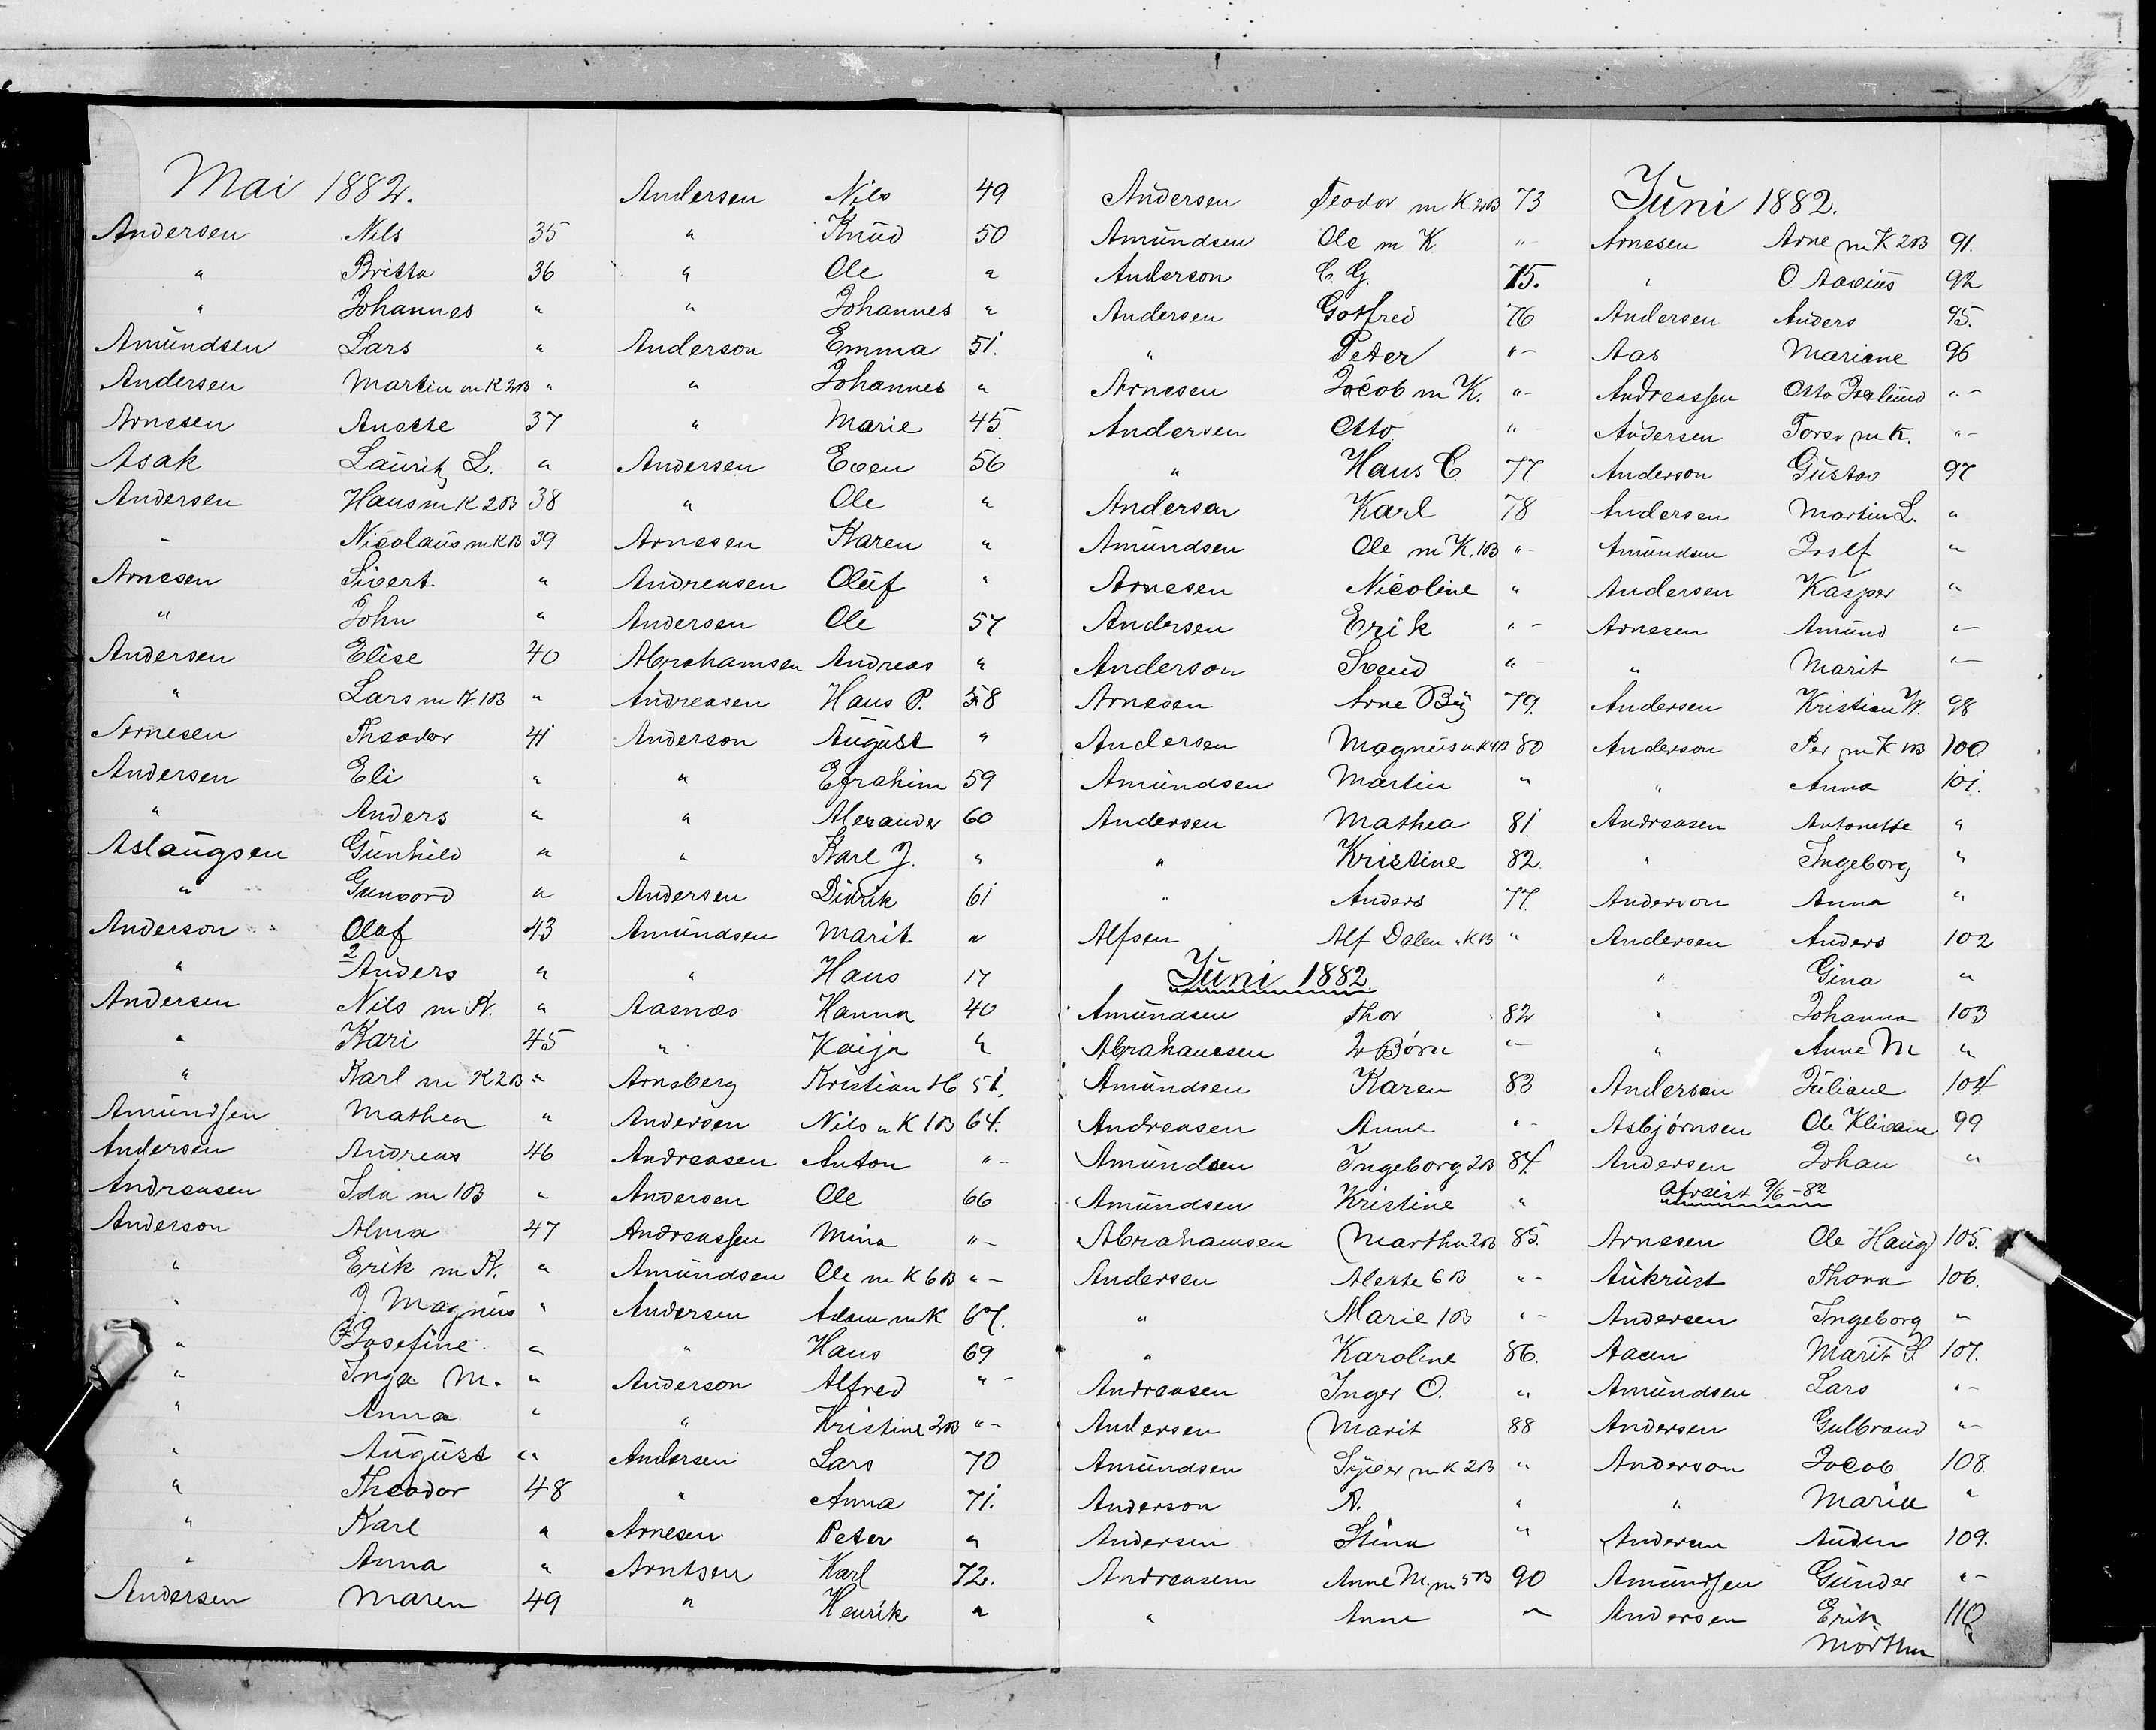 Mai 1882.
Andersen Nils 35
" Britta 36
" Johannes "
Amundsen Lars "
Andersen Martin m K 2 B "
Arnesen Anette 37
Asak Lauritz L. "
Andersen Hans m K 2 B 38
" Nicolaus m K B 39
Arnesen Sivert "
" John "
Andersen Elise 40
" Lars m K. 1 B "
Arnesen Theodor 41
Andersen Eli "
" Anders "
Aslaugsen Gunhild "
" Gunvord "
Anderson Olaf 43
" 2 Anders "
Andersen Nils m K. "
" Kari 45
" Karl m K 2 B "
Amundsen Mathea "
Andersen Andreas 46
Andreasen Ida m 1 B "
Anderson Alma 47
" Erik m K. "
" J. Magnus "
" Josefine "
" Inga M. "
" Anna "
" August "
" Theodor 48
" Karl "
" Anna "
Andersen Maren 49
Andersen Nils 49
" Knud 50
" Ole "
" Johannes "
Anderson Emma 51.
" Johannes "
" Marie 45.
Andersen Even 56
" Ole "
Arnesen Karen "
Andreasen Oluf "
Andersen Ole 57
Abrahamsen Andreas "
Andreasen Hans P. 58
Anderson August "
" Efrahim 59
" Alexander 60
" Karl J. "
Andersen Didrik 61
Amundsen Marit "
" Hans 17
Aasnæs Hanna 40
" Kaija "
Arnsberg Kristian H 51.
Andersen Nils m K 1 B 64.
Andreasen Anton "
Andersen Ole 66
Andreassen Mina "
Amundsen Ole m K 6 B "
Andersen Adam m K 67.
" Hans 69
Anderson Alfred "
" Kristine 2 B "
Andersen Lars 70
" Anna 71.
Arnesen Peter "
Arntsen Karl 72.
" Henrik "
Andersen Teodor m K. 2 B 73
Amundsen Ole m K "
Anderson C. G. 75.
Andersen Gotfred 76
" Peter "
Arnesen Jacob m K. "
Andersen Otto "
" Hans C. 77.
Anderson Karl 78
Amundsen Ole m K. 1 B "
Arnesen Nicoline "
Andersen Erik "
Anderson Svend "
Arnesen Arne By 79.
Andersen Magnus m K 4 B 80
Amundsen Martin "
Andersen Mathea 81
" Kristine 82
" Anders 77.
Alfsen Alf Dalen m K B "
Juni 1882
Amundsen Thor 82
Abrahamsen 2 Børn "
Amundsen Karen 83
Andreasen Anne "
Amundsen Ingeborg 2 B 84.
Amundsen Kristine "
Abrahamsen Martha 2 B 85.
Andersen Alerte 6 B "
" Marie 1 B "
" Karoline 86.
Andreasen Inger O. "
Andersen Marit 88
Amundsen Syver m K 2 B "
Anderson A. "
Andersen Stina "
Andreasen Anne M. m 5 B 90
" Anne "
Juni 1882.
Arnesen Arne m K 2 B 91.
" O. Aavius 92
Andersen Anders 95.
Aas Mariane 96
Andreassen Otto "
Andersen Torer m K. "
Anderson Gustav 97
Andersen Martin L. "
Amundsen Josef "
Andersen Kasper "
Arnesen Amund "
" Marit "
Andersen Kristian W. 98
Anderson Per m K 1 B 100
" Anna 101.
Andreasen Antonette "
" Ingeborg "
Anderson Anna "
Andersen Anders 102
" Gina "
" Johanna 103
" Anne M "
Anderson Juliane 104
Asbjørnsen Ole Klivane 99
Andersen Johan "
afreist 9/6-82
Arnesen Ole Haug 105.
Aukrust Thora 106.
Andersen Ingeborg "
Aaen Marit S. 107.
Amundsen Lars "
Andersen Gulbrand "
Anderson Jacob 108.
" Maria "
Andersen Auden 109.
Amundsen Gunder "
Andersen Erik 110
Marthea "